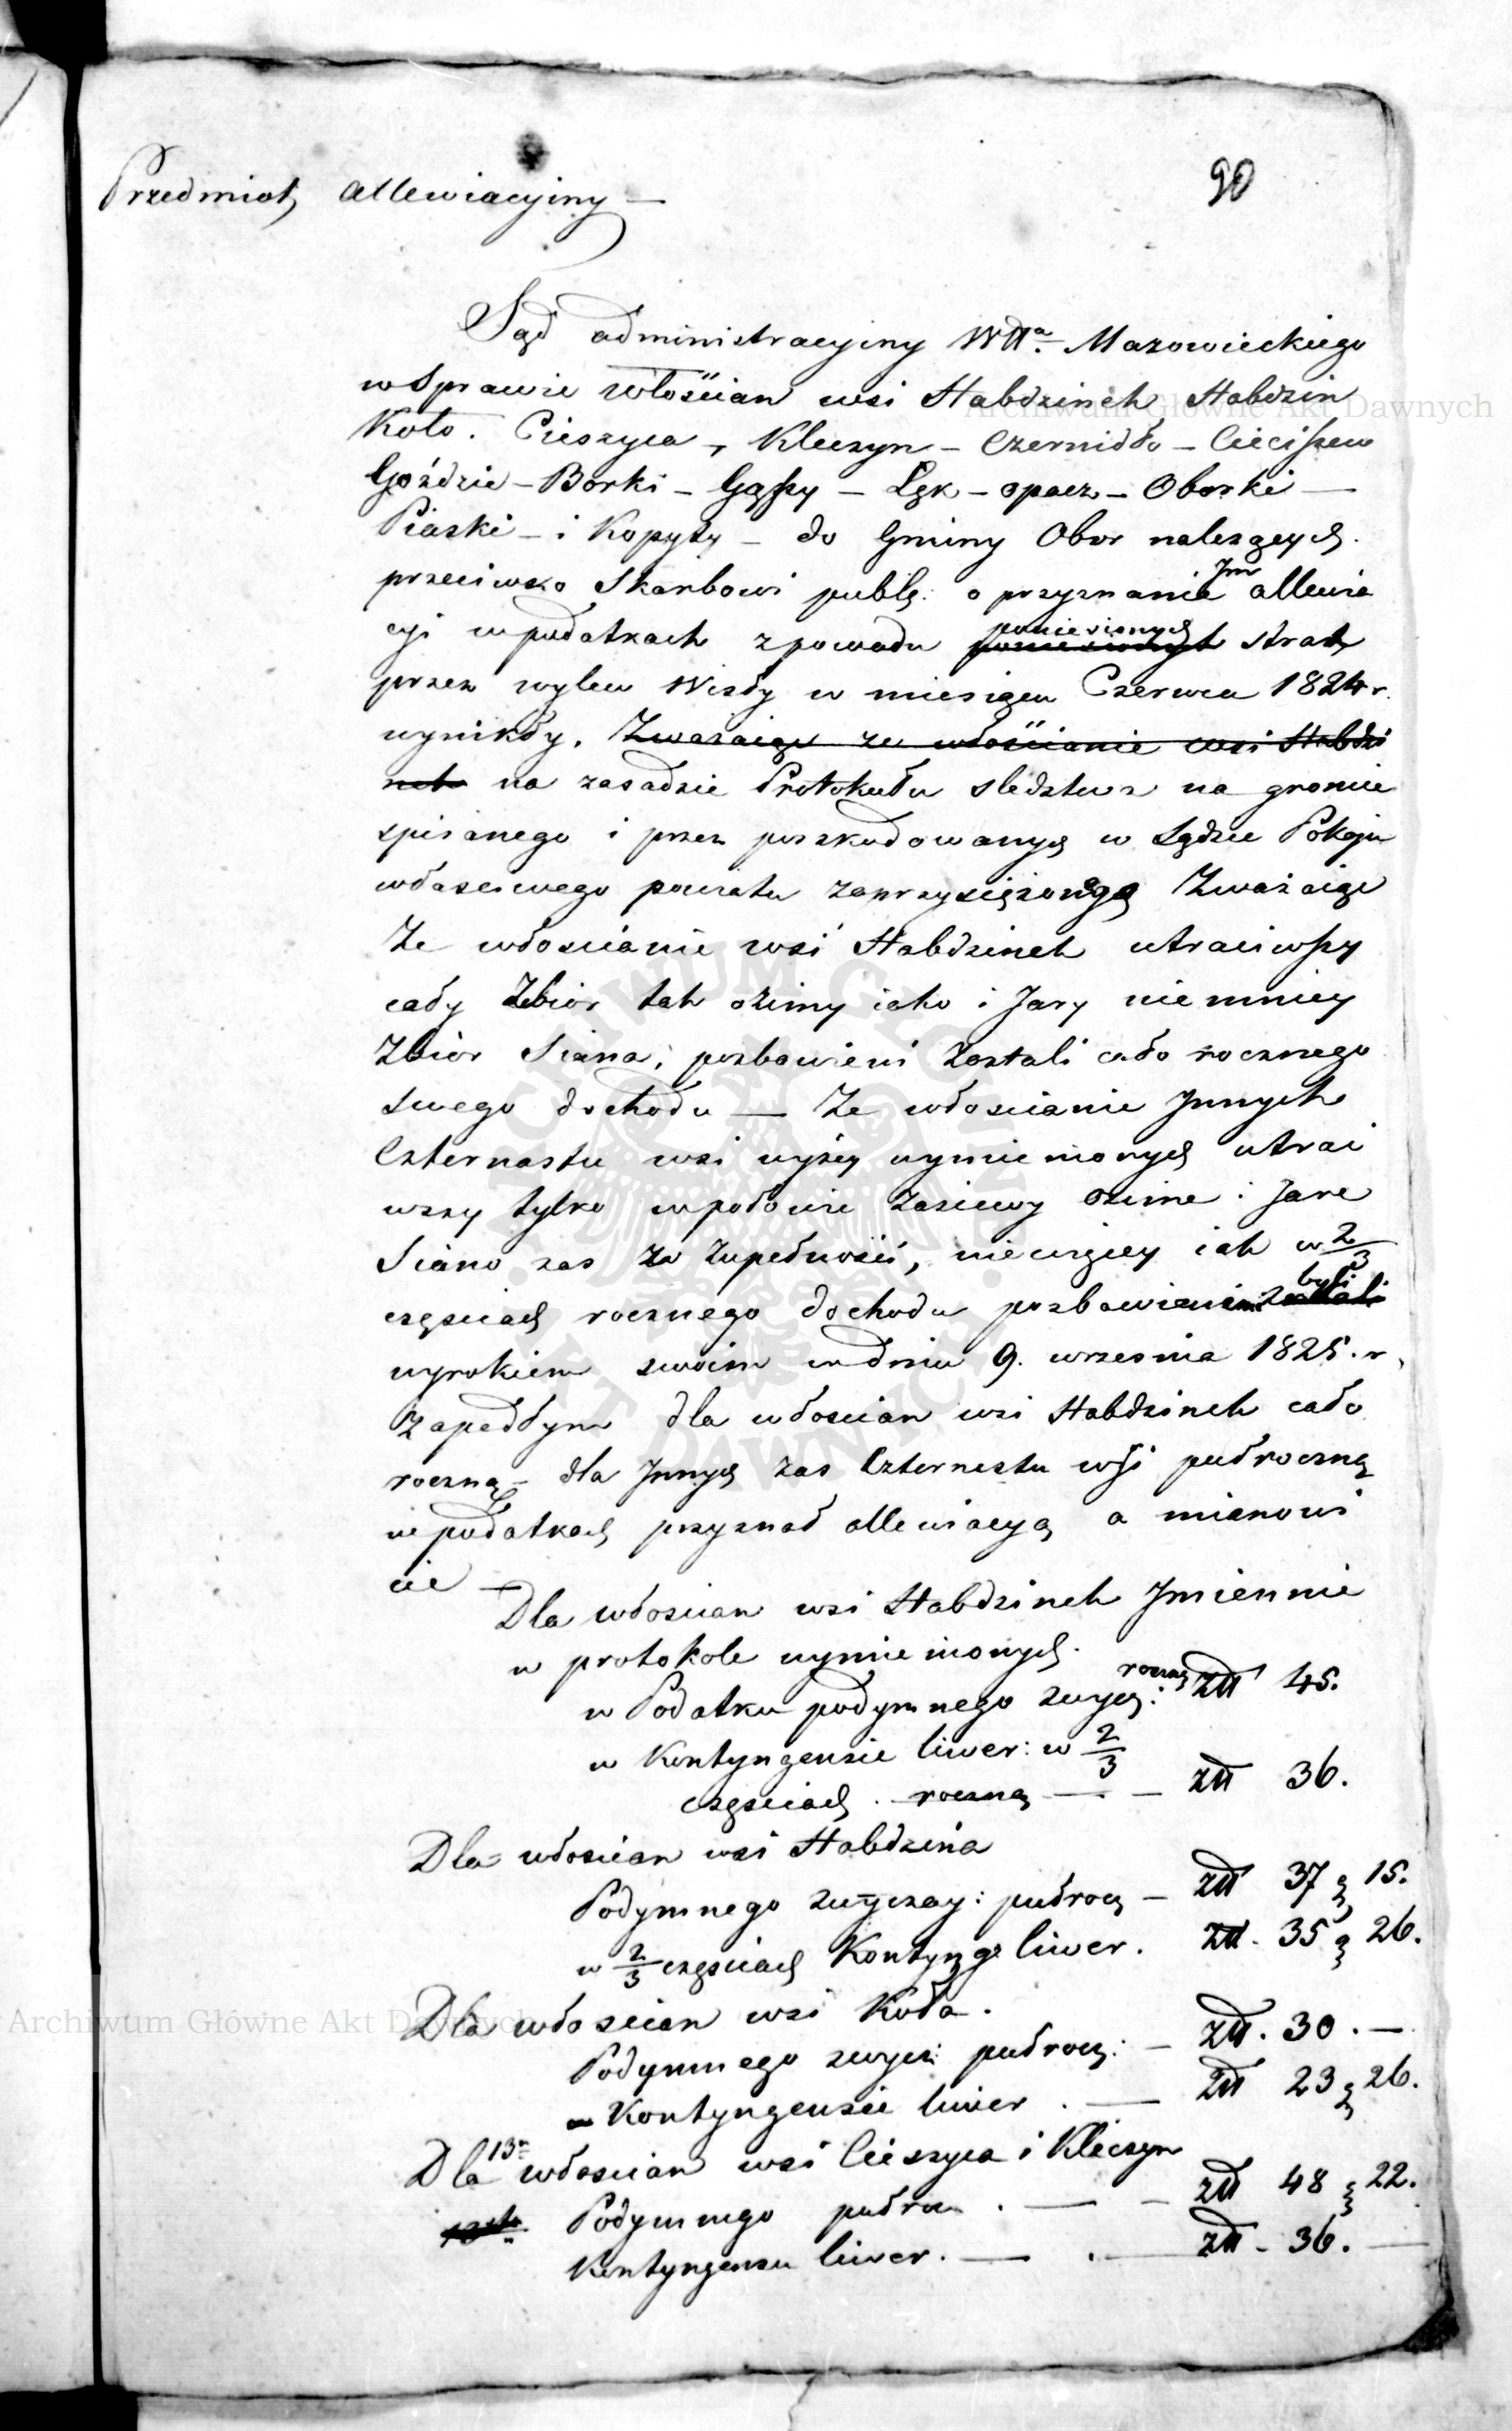 90
Przedmiot allewiacyjny —
Sąd administracyjny Wttª. Mazowieckiego
w Sprawie włościan wsi Habdzinek Habdzin
Koło. Cieszyca, Kleczyn – Czernidło – Cieciszew
Goździe – Borki – Gąssy – Łęk – opacz – Oborki —
Piaski – i Kopyty – do Gminy Obor należących.
przeciwko Skarbowi publ: o przyznanie Jm allewia
cyi w podatkach z powodu poniesionych poniesionych strat
przez wylew Wisły w miesiącu Czerwcu 1824 r.
wynikły. Zwazaiąc ze włościanie wsi Habdzi
nek na zasadzie Protokułu sledztwa na groncie
spisanego i przez poszkodowanych w Sądzie Pokoju
własciwego powiatu zaprzysiężonego Zważaiąc
Że włoscianie wsi Habdzinek utraciwszy
cały Zbior tak ozimy iako i Jary niemniey
Zbior Siana, pozbawieni Zostali cało rocznego
swego dochodu — Że włoscianie Jnnych
Czternastu wsi wyżey wymienionych utraci
wszy tylko w połowie Zasiewy ozime i Jare
Siano zas Za Zupełność, niewięcey iak w 2/3
częsciach rocznego dochodu pozbawieni byli zostali
wyrokiem swoim w dniu 9. wrzesnia 1825. r.
Zapadłym dla włoscian wsi Habdzinek cało
roczną – dla Jnnych zas Czternastu wsi pułroczną
w podatkach przyznał allewiacyą a mianowi
cie —
Dla włoscian wsi Habdzinek Jmiennie
w protokole wymienionych.
w Podatku podymnego zwycz: roczną złł 45.
w Kontyngensie liwer: w 2/3
częsciach. roczną — – złł 36.
Dla włoscian wsi Habdzina
Podymnego zwyczay: pułrocz – złł 37 g 15.
w 2/3 częsciach Kontyng: liwer. złł. 35 g 26.
Dla włoscian wsi Koła.
Podymnego zwycz: pułrocz: – złł. 30. —
Kontyngensie liwer. — złł 23 g 26.
Dla 13ª włoscian wsi Cieszyca i Kleczyn
Podymnego pułro . — – złł 48 g 22.
Kontyngensu liwer. — . — złł – 36. —
Archiwum Główne Akt Dawnych
Archiwum Główne Akt Dawnych
ARCHIWUM GŁÓWNE AKT DAWNYCH